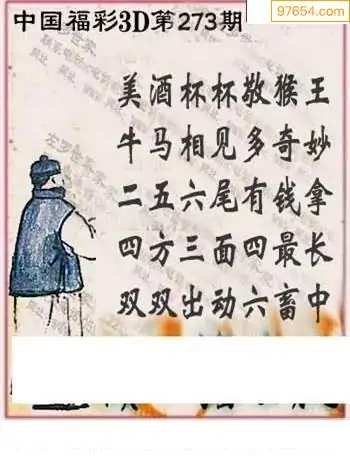 97654.com
中国福彩3D第273期
美酒杯杯敬猴王
牛马相见多奇妙
二五六尾有钱拿
四方三面四最长
双双出动六畜中